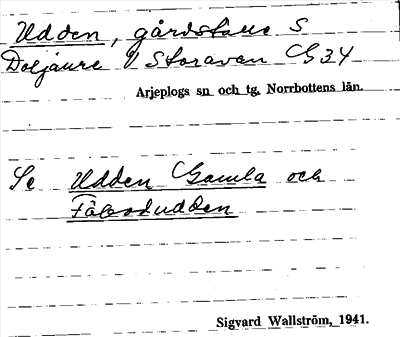 Udden, gårdställe S
Doljaure V Storavan C G 34
Arjeplogs sn och tg. Norrbottens län.
Se Udden Gamla och
Fäbodudden
Sigvard Wallström, 1941.